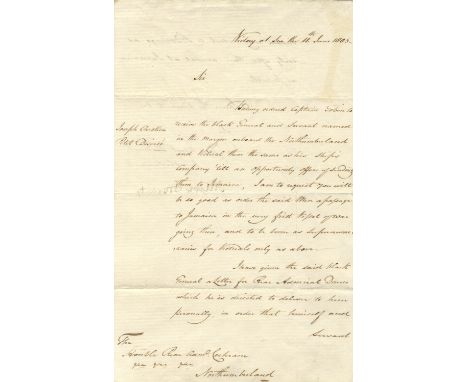 Victory at Sea the 11th June 1805.
Sir
Having ordered Captain Tobin to
retain the black General and Servant named
Joseph
in the margin onboard the Northumberland
and Victual them the same as his Ship's
company 'till an opportunity offers of sending
them to Jamaica, I am to request you will
be so good as order the said Men a passage
to Jamaica in the very first Vessel of war
going there, and to be borne as Supernume-
raries for Victuals only as above.
I have given the said black
General a Letter for Rear Admiral Dacres
which he is directed to deliver to him
personally, in order that himself and
Servant
The
Honble Rear Adml. Cochrane
Northumberland